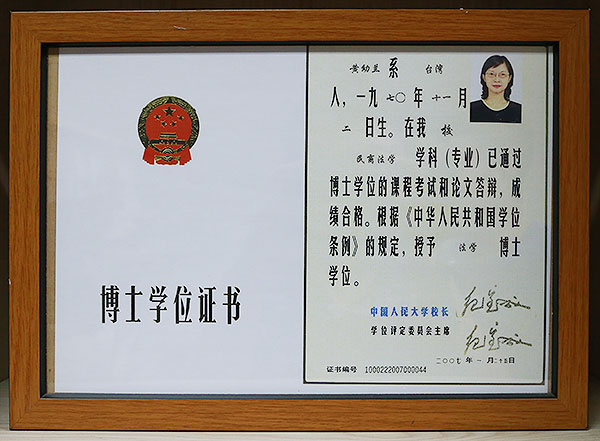 博士学位证书
黄幼兰 系 台湾
人，一九七〇年十一月
二 日生。在我 校
民商法学 学科（专业）已通过
博士学位的课程考试和论文答辩，成
绩合格。根据《中华人民共和国学位
条例》的规定，授予 法学 博士
学位。
中国人民大学校长
学位评定委员会主席
二〇〇七年一月二十五日
证书编号 1000222007000044